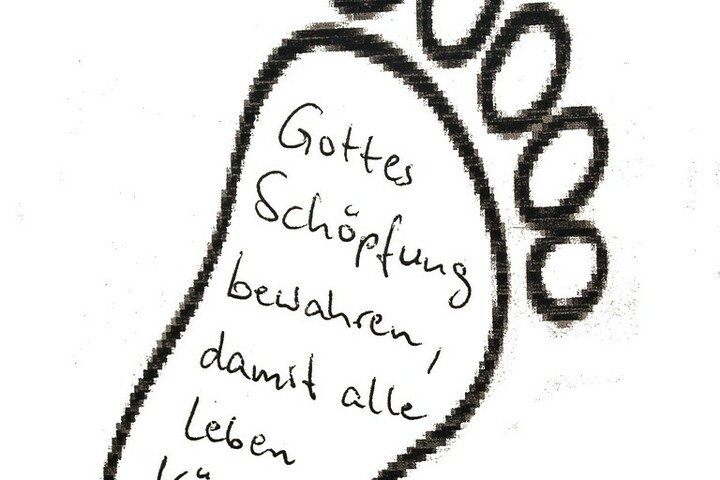 Gottes
Schöpfung
bewahren,
damit alle
leben